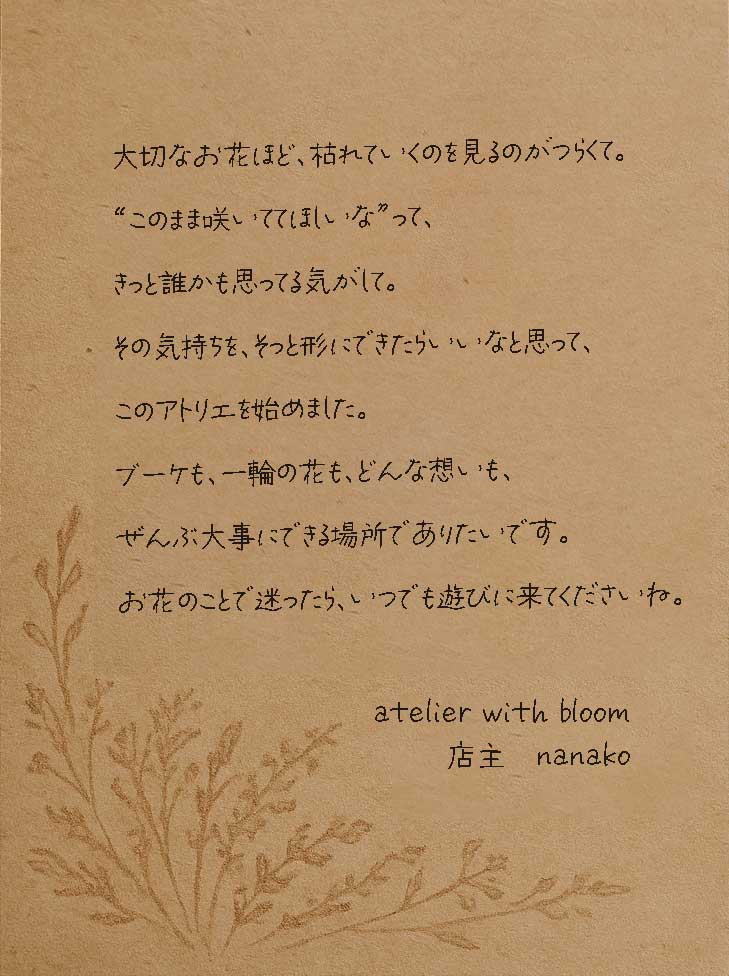 大切なお花ほど、枯れていくのを見るのがつらくて。
“このまま咲いててほしいな”って、
きっと誰かも思ってる気がして。
その気持ちを、そっと形にできたらいいなと思って、
このアトリエを始めました。
ブーケも、一輪の花も、どんな想いも、
ぜんぶ大事にできる場所でありたいです。
お花のことで迷ったら、いつでも遊びに来てくださいね。
atelier with bloom
店主 nanako